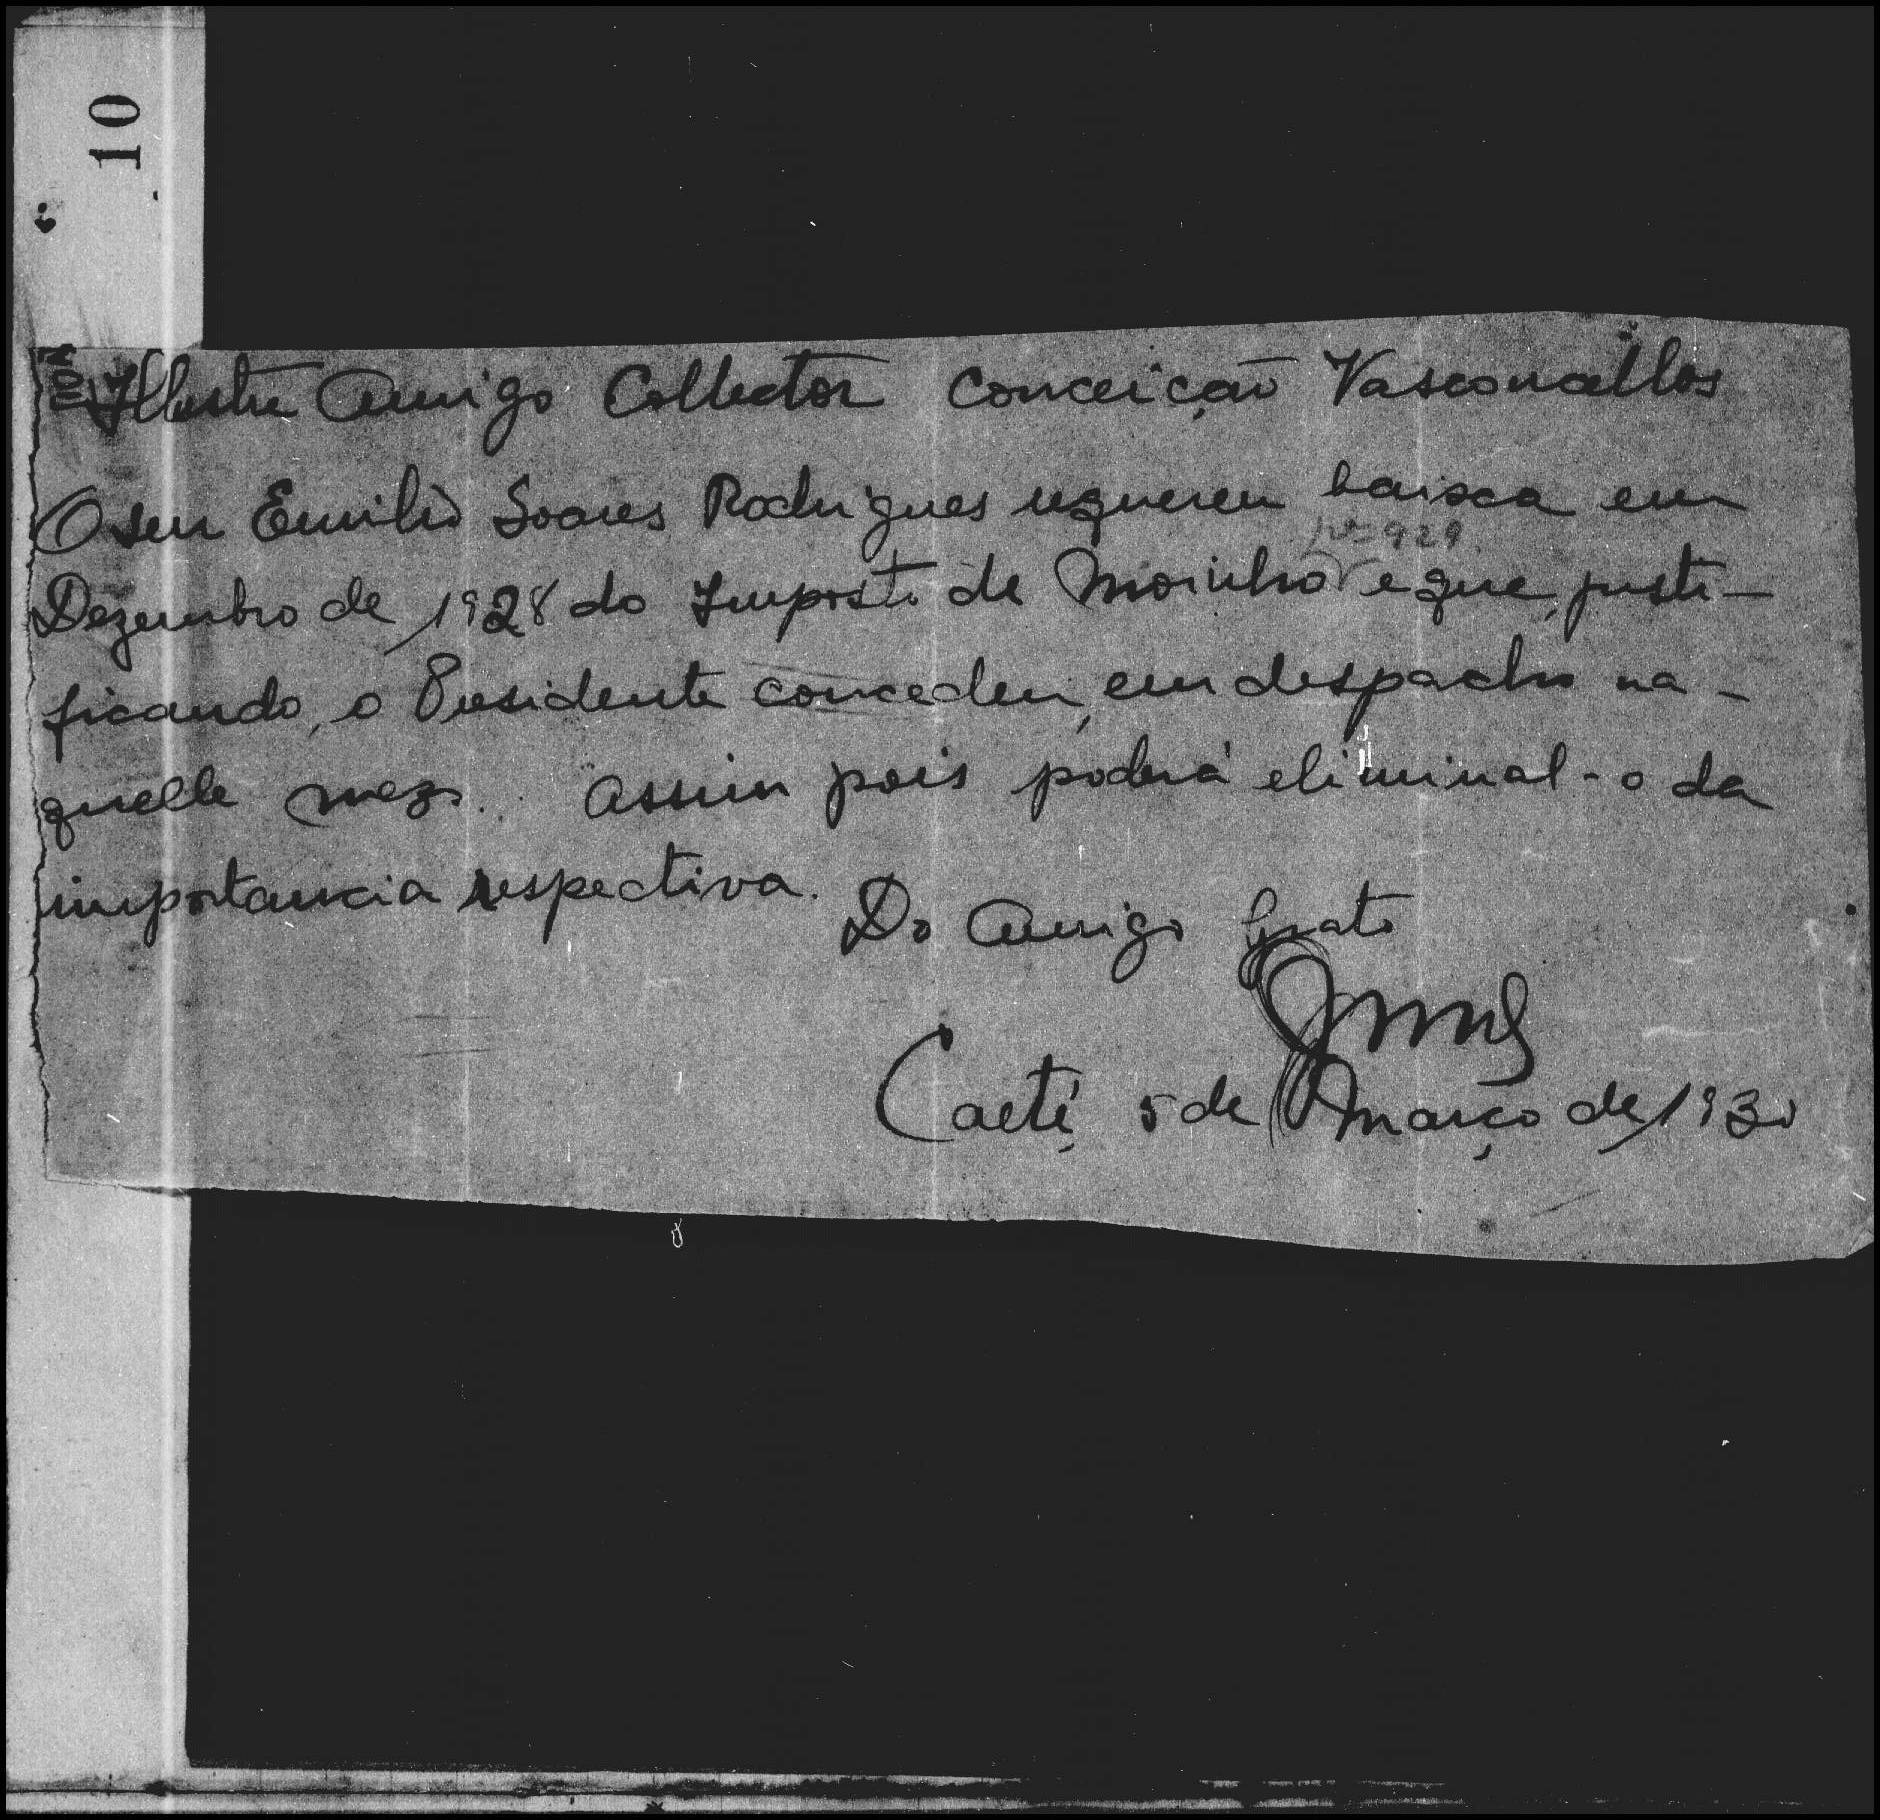 10
Illustre Amigo Collector Conceição Vasconcellos
O senr Emilio Soares Rodrigues requereu baixa em
nº 929
Dezembro de 1928 do Imposto de Moinho e que, justi-
ficando, o Presidente concedeu, em despacho na-
quelle mez. Assim pois poderá eliminal-o da
importancia respectiva.
Do Amigo Grato
Caeté, 5 de Março de 1930